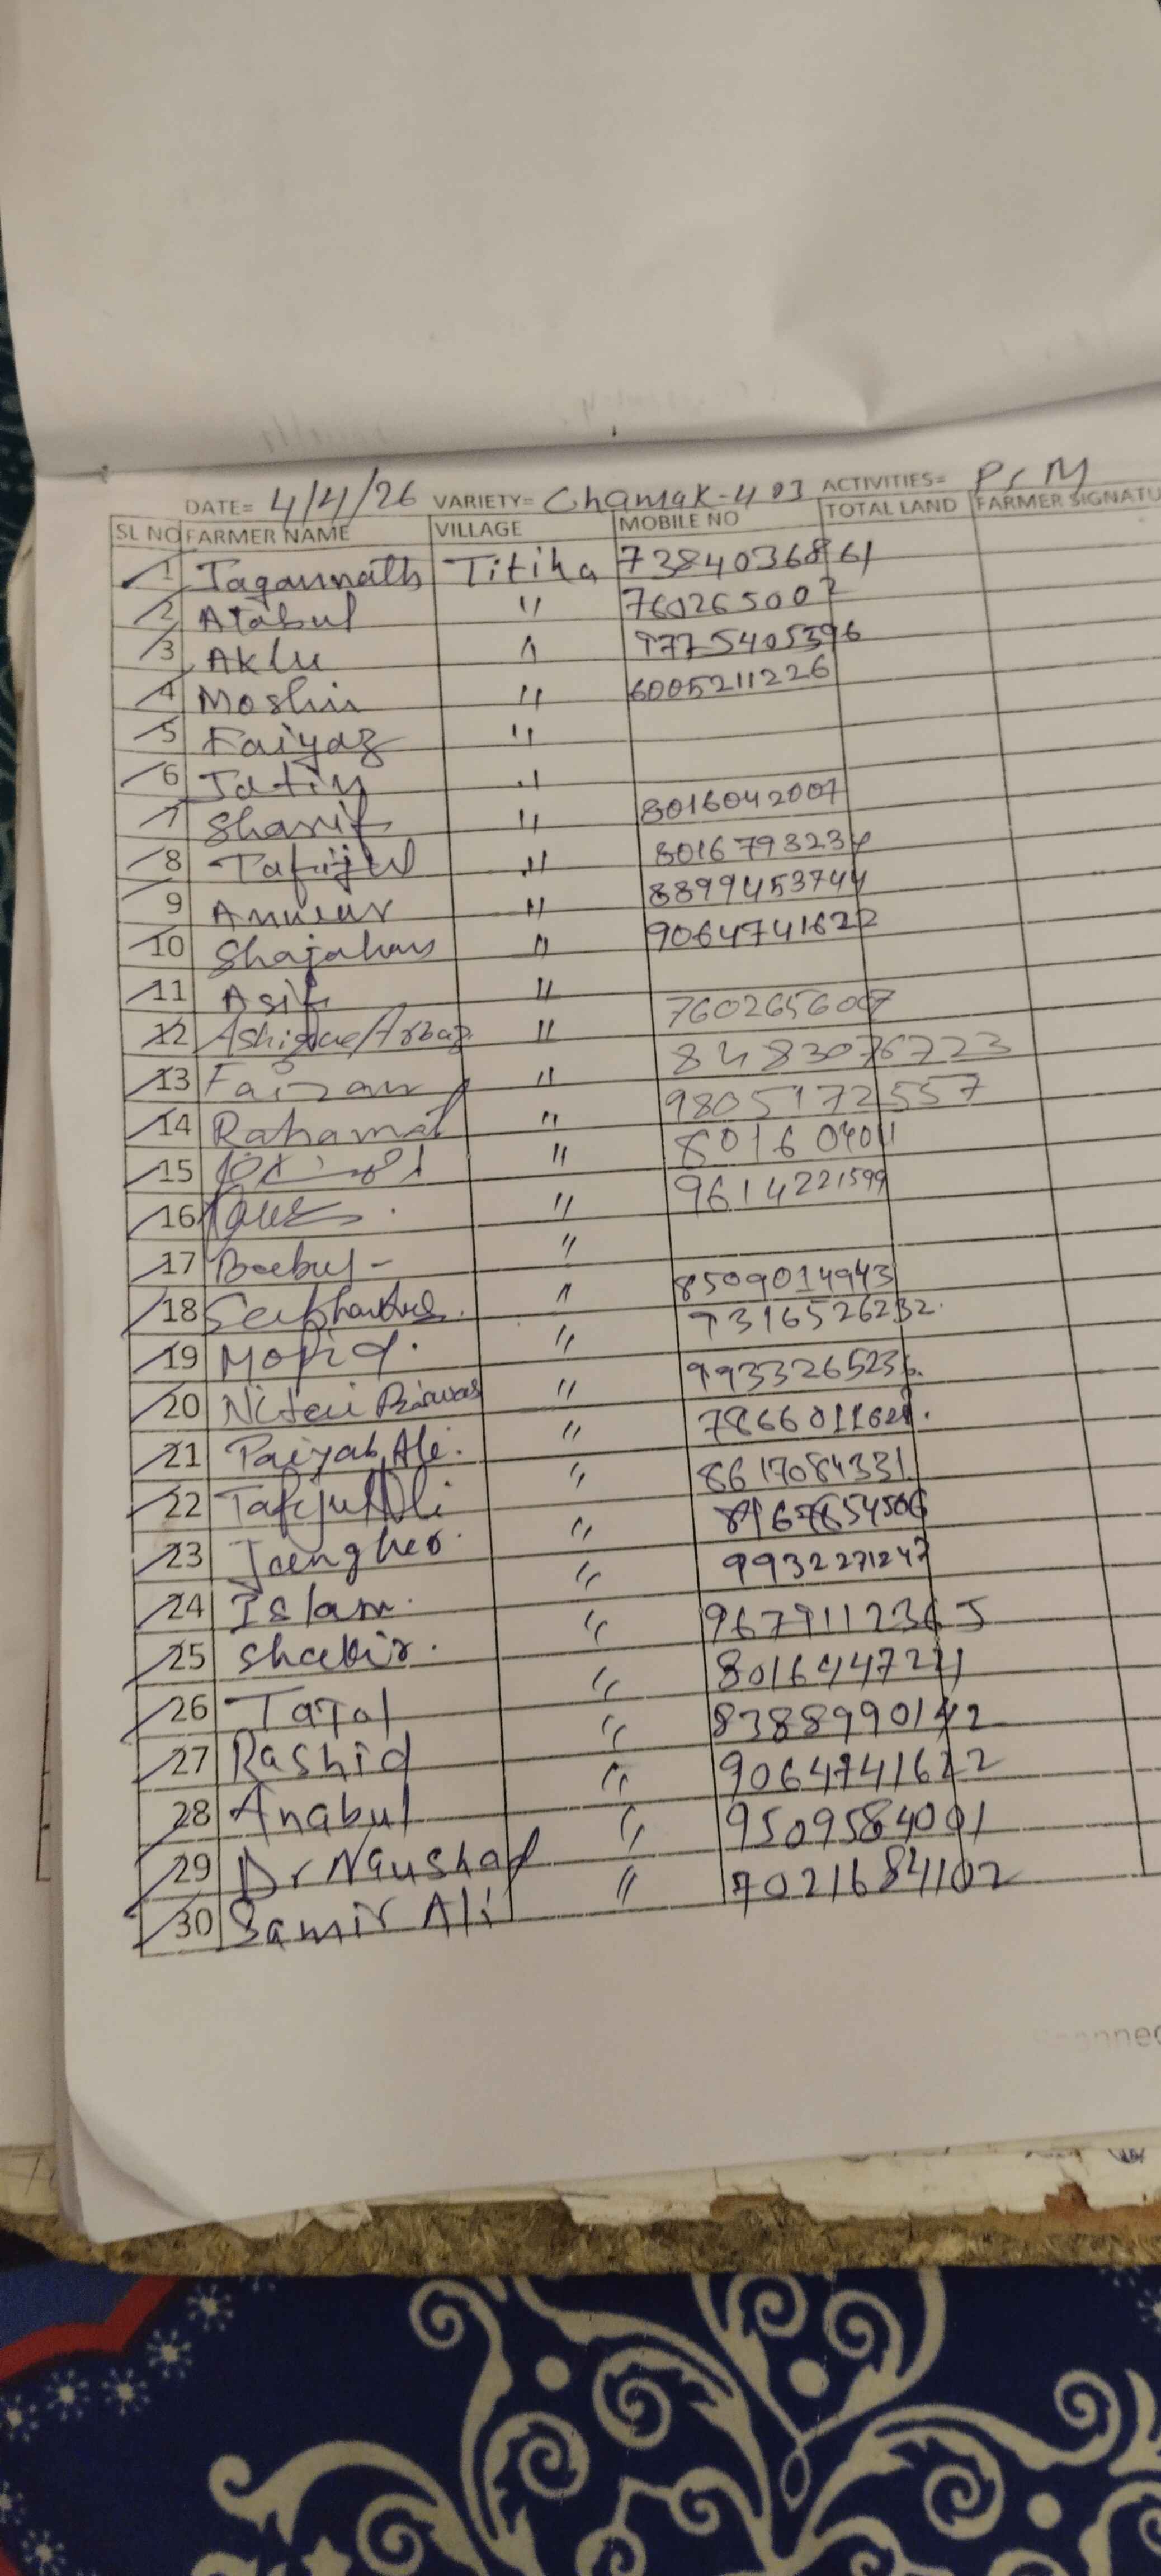 DATE= 4/4/26 VARIETY= Chamak-403 ACTIVITIES= PSM
SL NO FARMER NAME VILLAGE MOBILE NO TOTAL LAND FARMER SIGNATU
1 Jagannath Titiha 7384036861
2 Atabul " 760265007
3 Aklu " 9775405396
4 Moshin " 6005211226
5 Faiyaz "
6 Jatin "
7 Sharif " 8016042007
8 Tafijul " 8016793234
9 Anwar " 8899453744
10 Shajahan " 9064741622
11 Asif "
12 Ashique/Arbaz " 7602656007
13 Faizan " 8483076723
14 Rahamat " 9805172557
15 " 801604011
16 " 9614221599
17 Babul - "
18 " 8509014943
19 Mofid. " 7316526232.
20 Niten " 9933265236.
21 Paiyab Ali. "
22 Tafijul Ali " 8617084331
23 "
24 Islam. " 9932271247
25 Shabir. " 9679112365
26 Tajol " 8016447221
27 Rashid " 8388990142
28 Anabul " 9064741622
29 Dr Naushad " 9509584001
30 Samir Ali " 7021684102